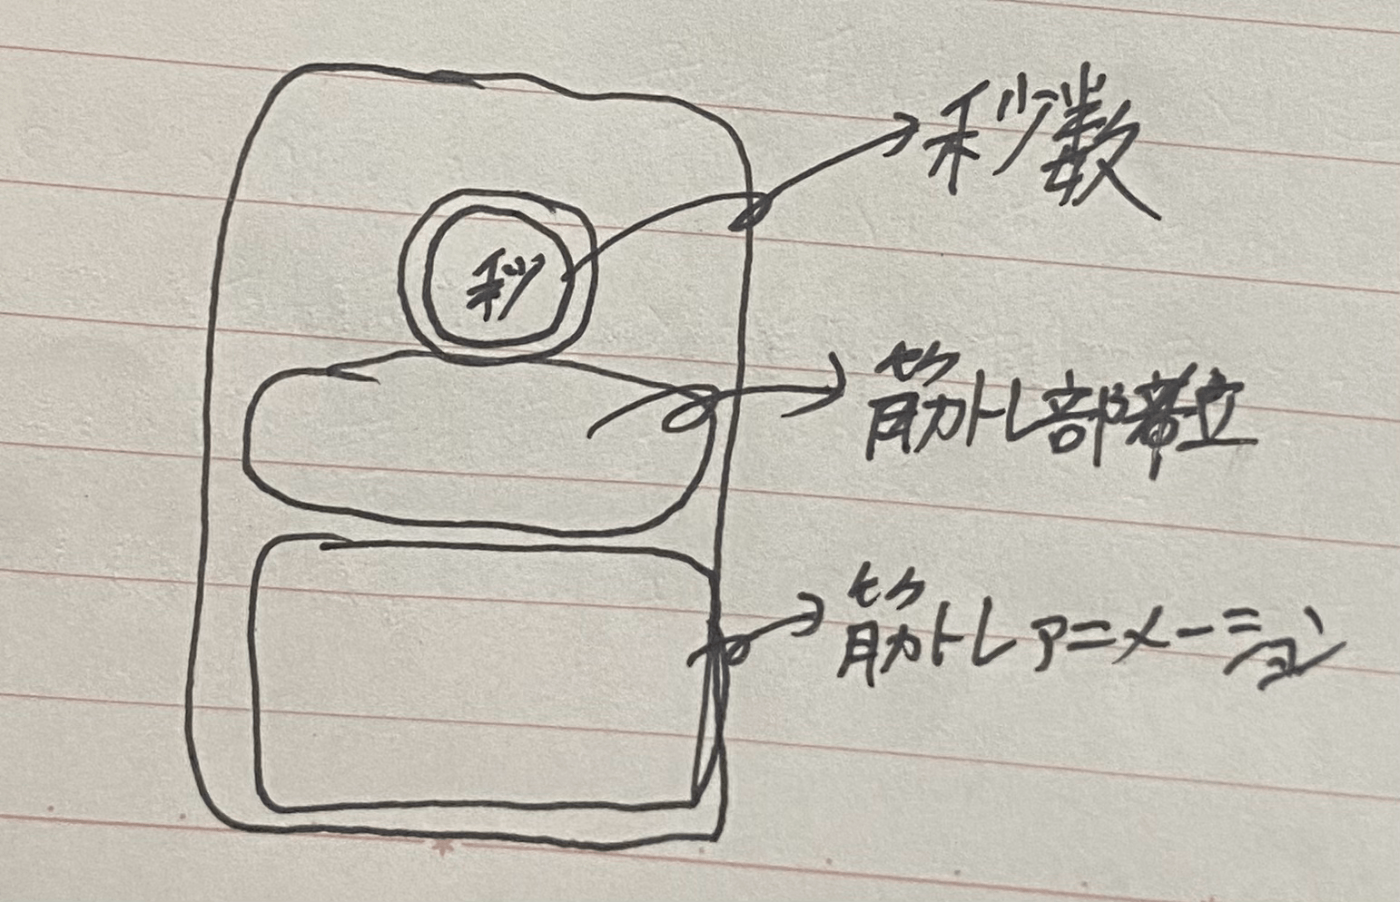 秒数
秒
筋トレ部位
筋トレアニメーション